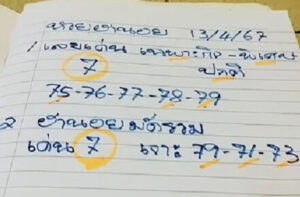 หวยฮานอย 13/4/67
1 เลขเด่น เฉพาะกิจ - พิเศษ
7 ปกติ
75-76-77-78-79
2 ฮานอยมัดรวม
เด่น 7 เจาะ 79-71-73